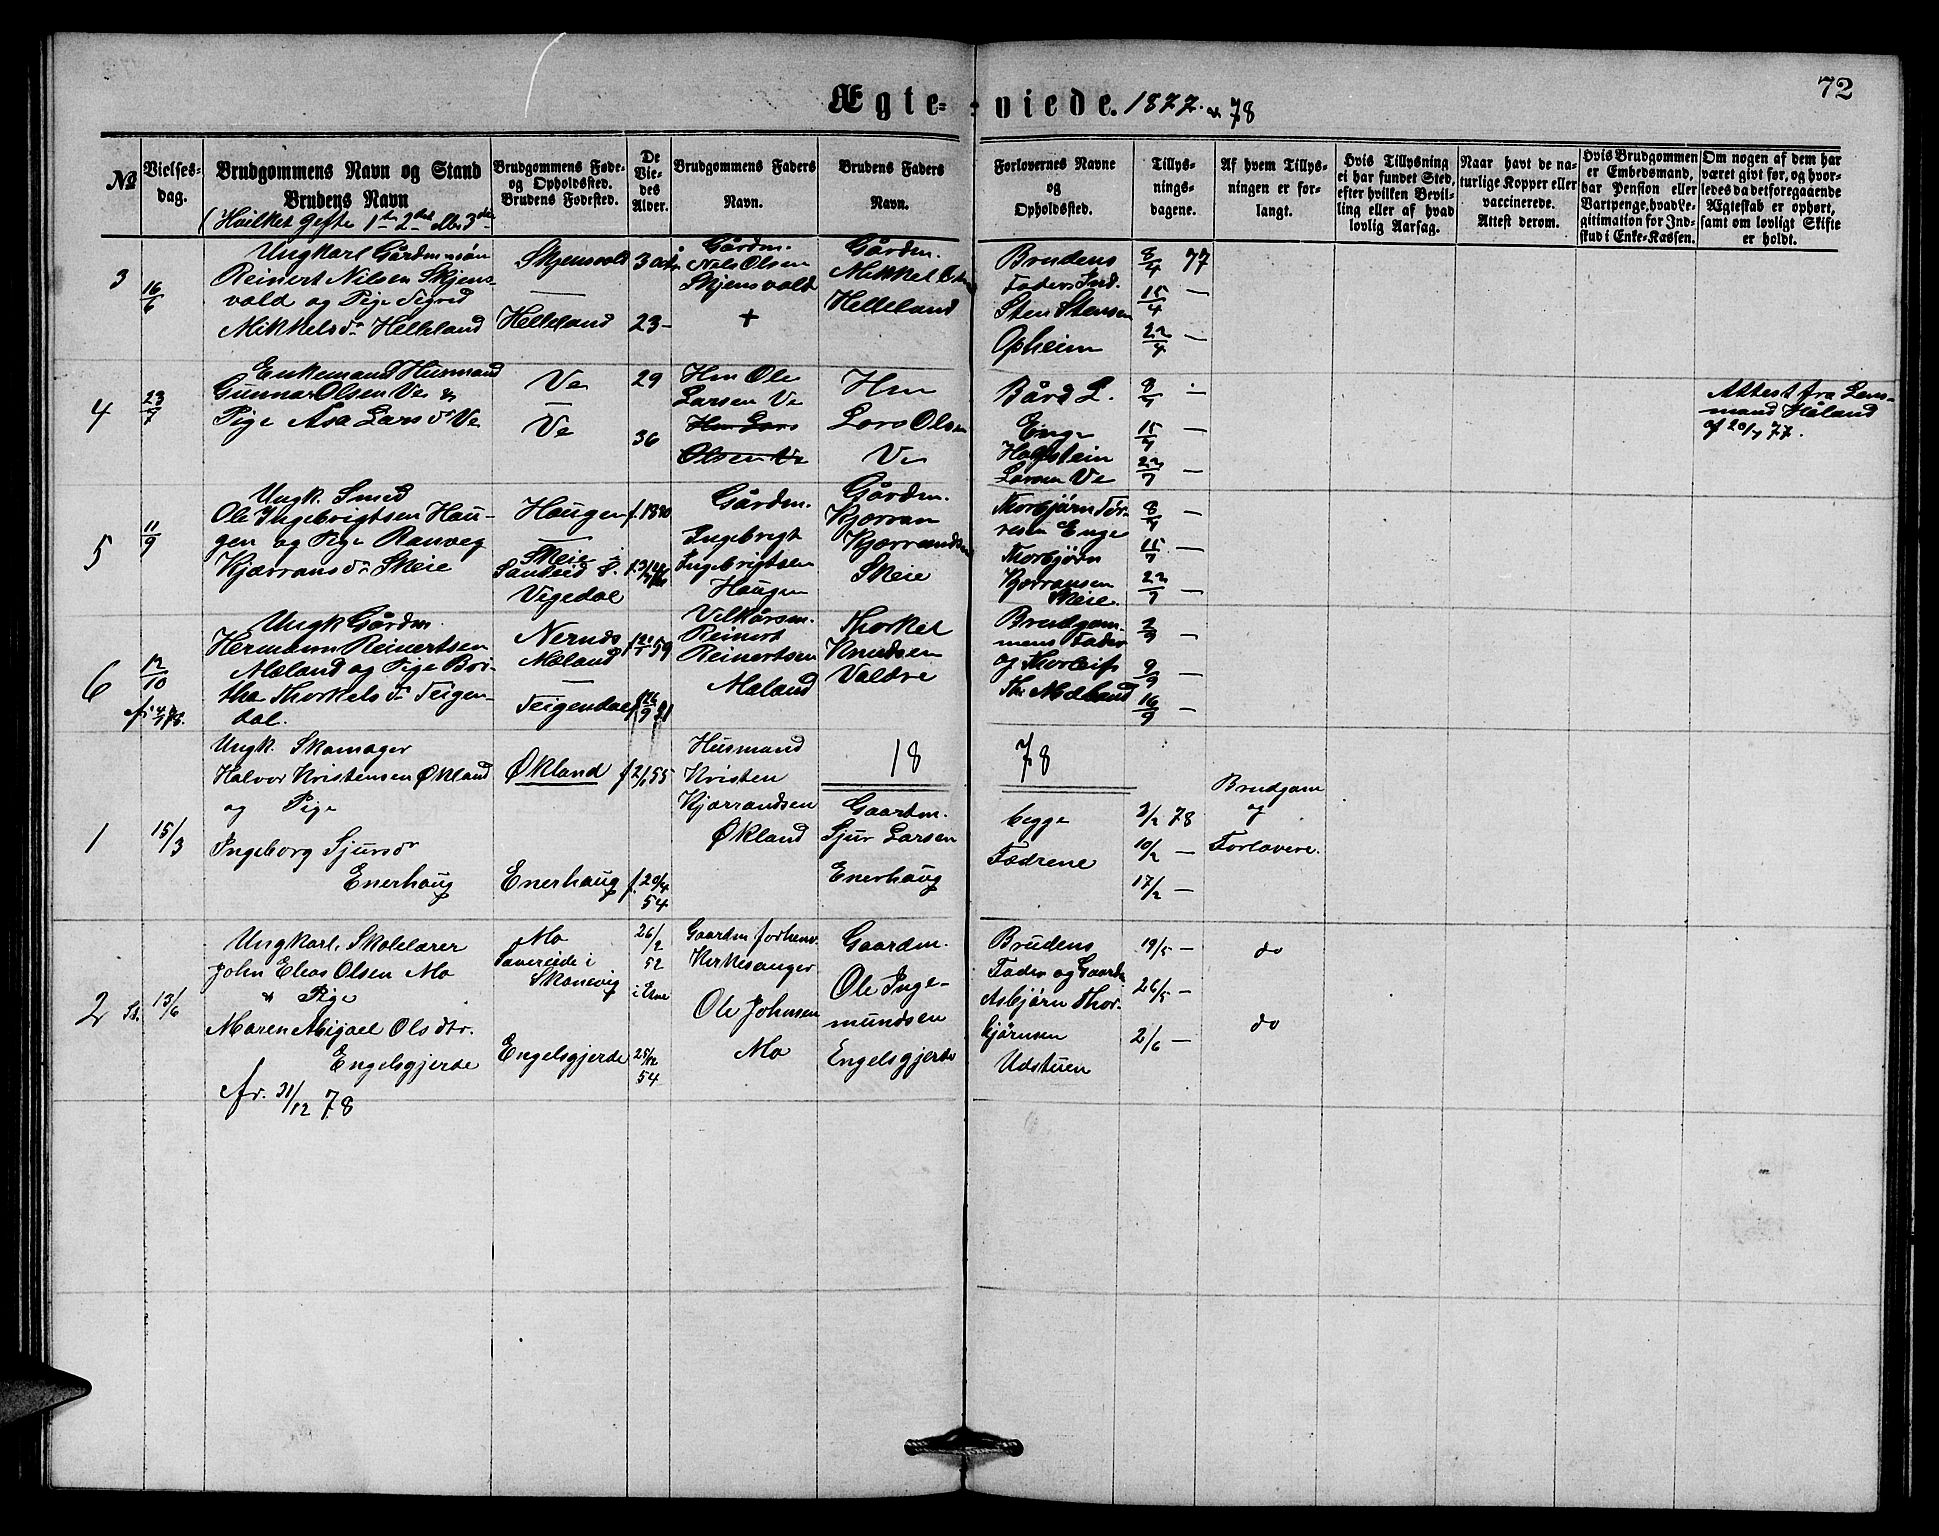 72
Ægte-viede. 1877. & 78
No
Vielsesdag.
Brudgommens Navn og Stand
Brudens Navn
(Hvilket Gifte 1ste 2det el. 3die
Brudgommens Føde- og Opholdssted.
Brudens Fødested.
De Viedes Alder.
Brudgommens Faders Navn.
Brudens Faders Navn.
Forlovernes Navne og Opholdssted.
Tillysningsdagene.
Af hvem Tillysningen er forlangt.
Hvis Tillysning ei har fundet Sted, efter hvilken Bevilling eller af hvad lovlig Aarsag.
Naar havt de naturlige Kopper eller vaccinerede. Attest derom.
Hvis Brudgommen er Embedsmand, har Pension eller Vartpenge, hvad Legitimation for Indskud i Enke-Kassen.
Om nogen af dem har været givt før, og hvorledes da det foregaaende Ægteskab er ophørt, samt om lovligt Skifte er holdt.
3
16/6
Ungkarl Gårdmnsön
Reinert Nilsen Skjens-
vold og Pige Sigrid
Mikkelsdr Helleland
Skjensvold
Helleland
30
23
Gårdm.
Nels Olsen
Skjensvold
+
Gårdm.
Mikkel
Helleland
Brudens
Fader
Sten Stensen
Opheim
8/4 77
15/4 —
22/4 —
4
23/7
Enkemand Husmand
Gunnar Olsen Ve &
Pige Asa Larsdr Ve
Ve
Ve
29
36
Hm Ole
Larsen Ve
Hm Lars
Olsen Ve
Hm
Lars Olsen
Ve
Bård L.
Enge
Larsen Ve
8/7 -
15/7 —
22/7 —
Attest fra Lens-
mand Håland
af 20/7 77.
5
11/9
Ungk. Smed
Ole Ingebrigtsen Hau-
gen og Pige Ranveg
Kjærransdr Skeie
Haugen
Skeie i
Sandeid
Vigedal
f. 1840
Gårdm.
Ingebrigt
Ingebrigtsen
Haugen
Gårdm.
Kjærran
Kjærrandsen
Skeie
Thorbjörn Tor-
resen Enge
Thorbjörn
Kjærransen
Skeie.
8/7 —
15/7 —
22/7 —
6
12/10
Ungk Gårdm.
Hermann Reinertsen
Mæland og Pige Bri-
tha Thorkelsdr Teigen-
dal.
Nernds
Mæland
Teigendal
59
Reinert
Reinertsen
Mæland
Thorkel
Knudsen
Valdre
Brudgom-
mens Fader
og Thorleif
Mæland
2/9 —
9/9 —
16/9 —
1878
1
15/3
Ungk. Skomager
Halvor Kristensen Økland
og Pige
Ingeborg Sjursdr
Enerhaug
Økland
Enerhaug
f 2/1 55
f. 20/4
54
Husmand
Kristen
Kjærrandsen
Økland
Gaardm.
Sjur Larsen
Enerhaug
begge
Fædrene
3/2 78
10/2 —
17/2 —
Brudgom
og
Forlovere.
2
13/6
Ungkarl, Skolelærer
John Elias Olsen Mo
& Pige
Maren Abigael Olsdtr.
Engelsgjerde
fr. 31/12 78
Mo
Savereide i
Skonevig
Engelsgjerde
26/2
52
25/12
54
Gaardm forhenv.
Kirkesanger
Ole Johnsen
Mo
Gaardm.
Ole Inge-
mundsen
Engelsgjerde
Brudens
Fader og Gaardm
Asbjörn Thor-
björnsen
Udstuen
19/5 —
26/5 —
2/6 —
do
do